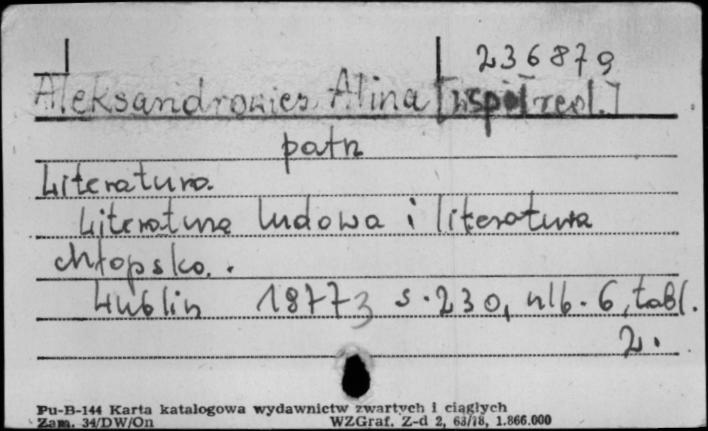 236879
Aleksandrowicz Alina [współred.]
patrz
Literatura.
Literatura ludowa i literatura
chłopska.
Lublin 1977 s. 230, nlb. 6, tabl.
2.
Pu-B-144 Karta katalogowa wydawnictw zwartych i ciągłych
Zam. 34/DW/On WZGraf. Z-d 2, 63/78, 1.866.000